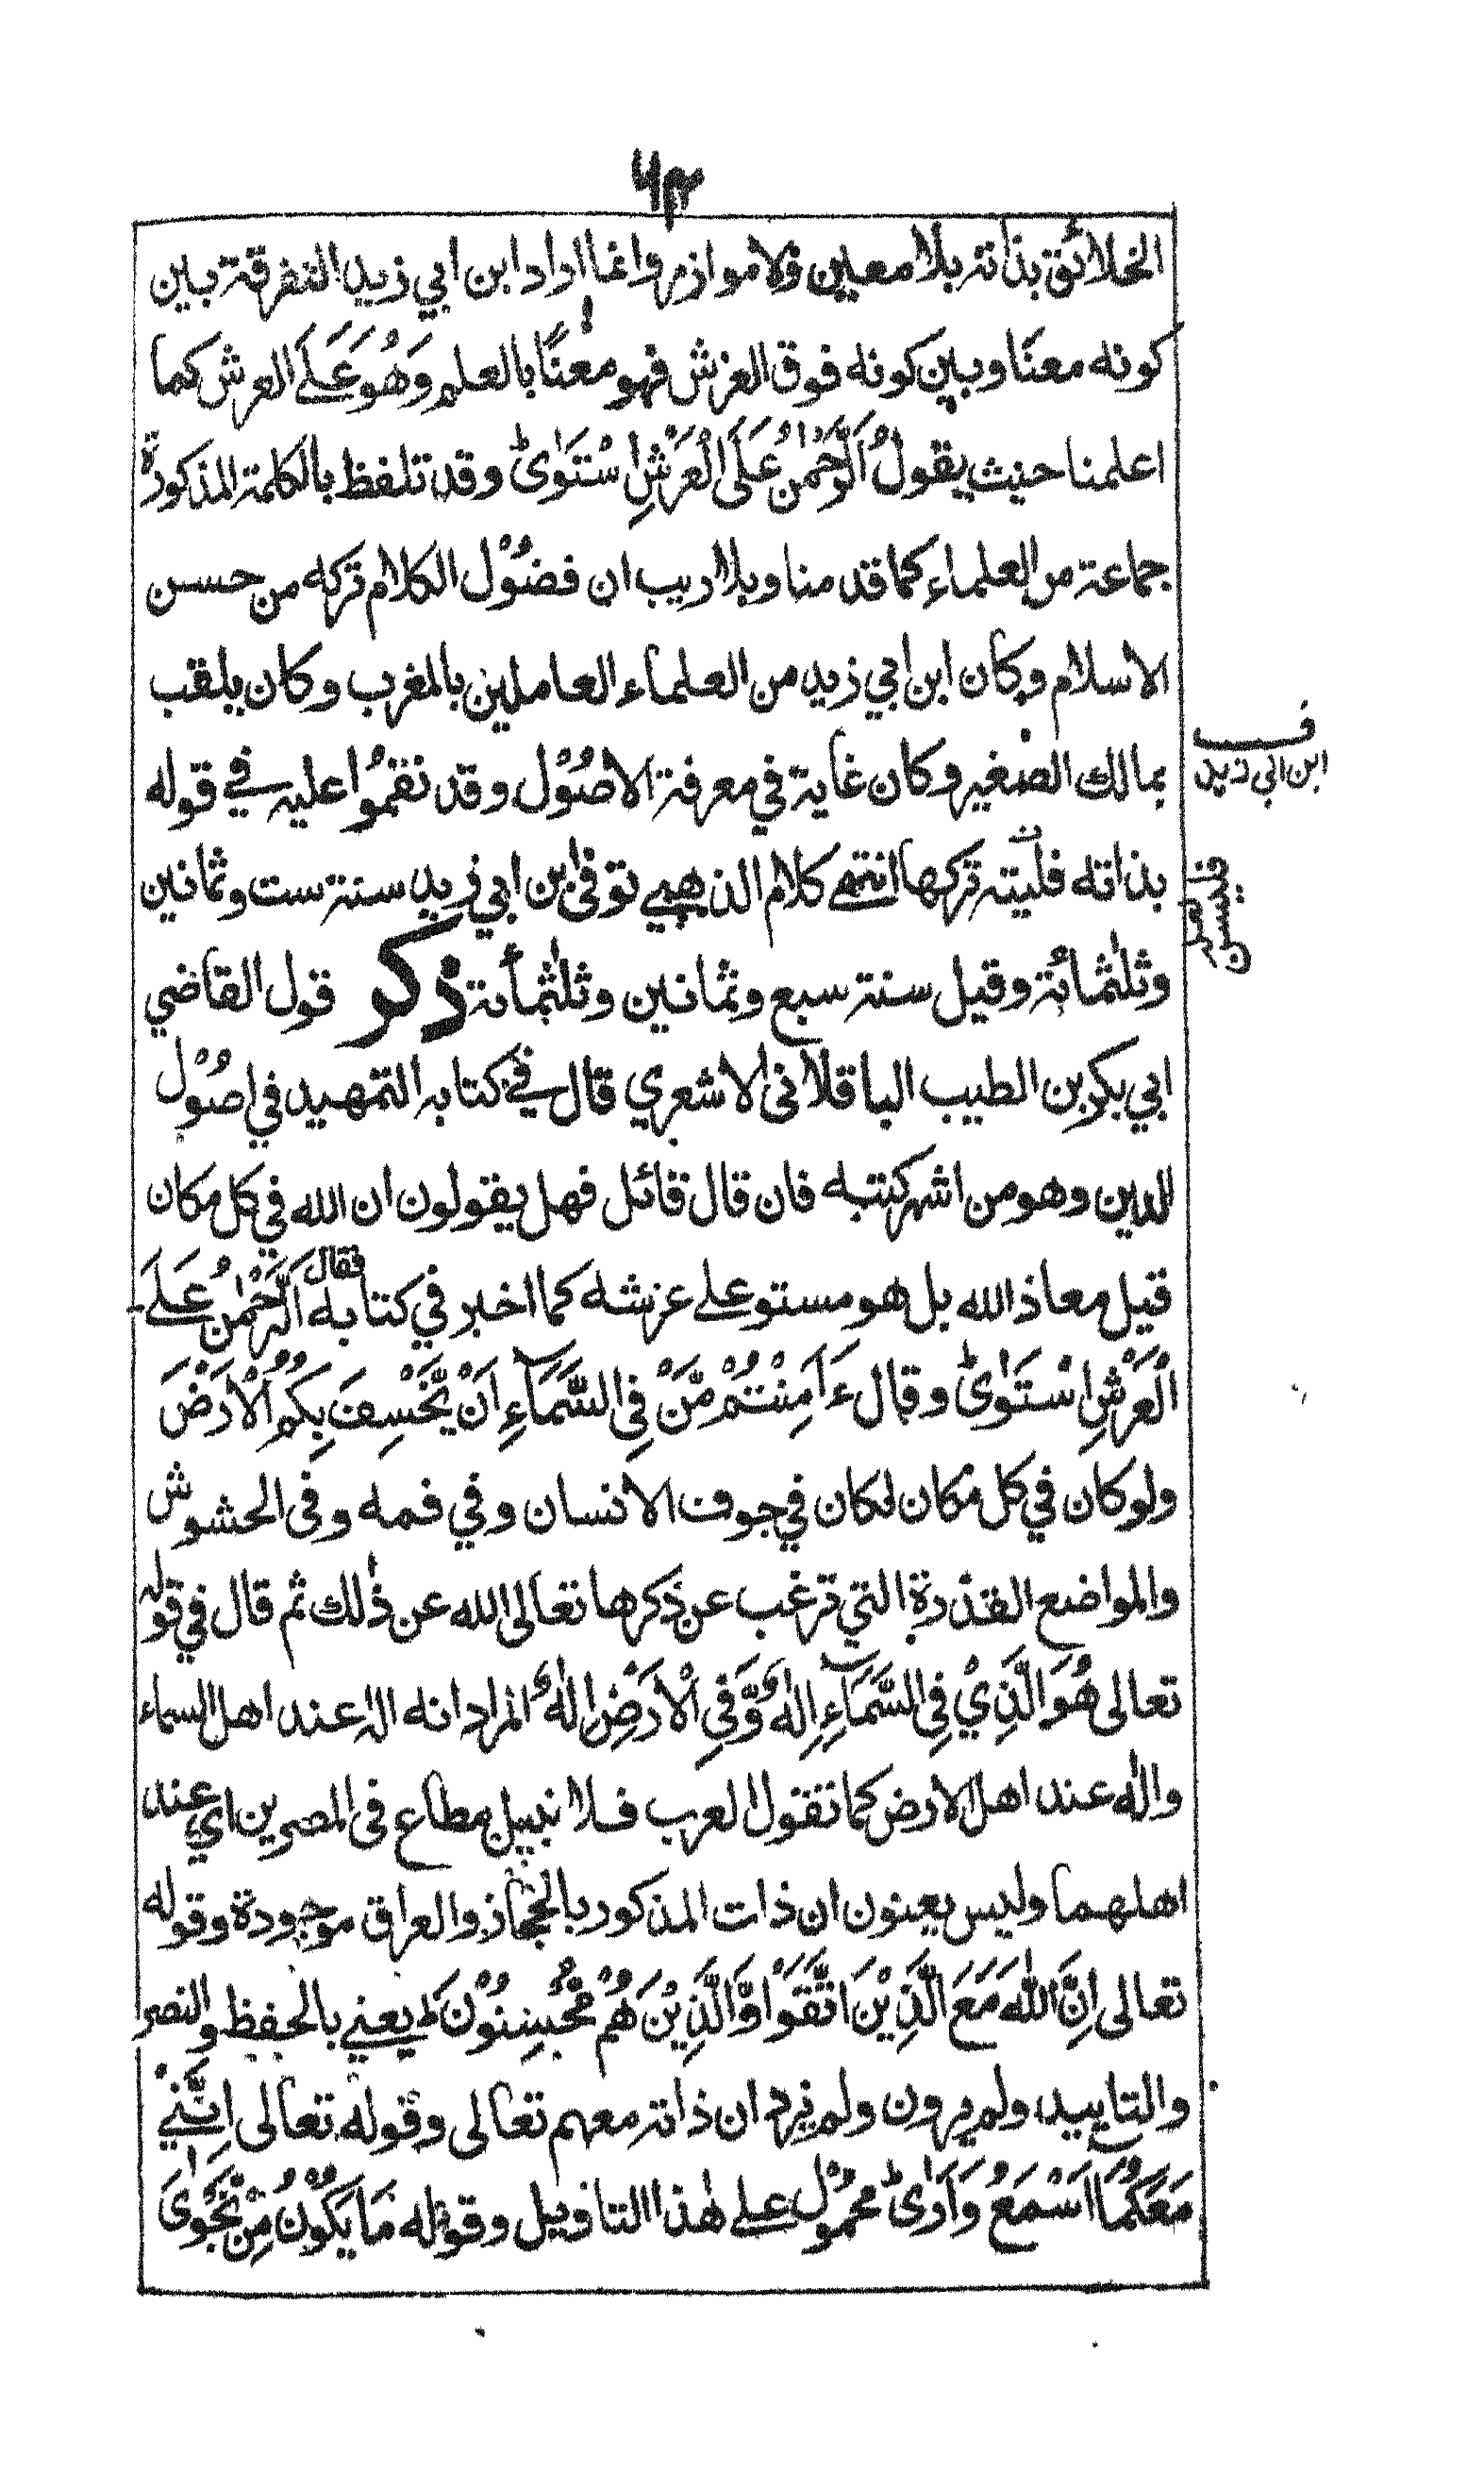 ٦٣
الخلائق بذاته بلا معين ولا موازر وانما اراد ابن ابي زيد التفرقة بين
كونه معنا وبين كونه فوق العرش فهو معنا بالعلم وَهُوَ عَلَى العرش كما
اعلمنا حيث يقولُ اَلرَّحْمٰنُ عَلَى الْعَرْشِ اسْتَوٰى وقد تلفظ بالكلمة المذكورة
جماعة من العلماء كما قدمنا وبلا ريب ان فضُوْل الكلام تركه من حسن
الاسلام وكان ابن ابي زيد من العلماء العاملين بالمغرب وكان يلقب
بمالك الصغير وكان غاية في معرفة الاصُوْل وقد نقمُوا عليه في قوله
بذاته فليته تركها انتهى كلام الذهبي توفى ابن ابي زيد سنة ست وثمانين
وثلثمائة وقيل سنة سبع وثمانين وثلثمائة ذكر قول القاضي
ابي بكر بن الطيب الباقلانى الاشعري قال في كتابه التمهيد في اصُوْل
الدين وهو من اشهر كتبه فان قال قائل فهل يقولون ان الله في كل مكان
قيل معاذ الله بل هو مستو على عرشه كما اخبر في كتابه فقال اَلرَّحْمٰنُ عَلَى
الْعَرْشِ اسْتَوٰى وقال ءَاَمِنْتُمْ مَّنْ فِى السَّمَآءِ اَنْ يَّخْسِفَ بِكُمُ الْاَرْضَ
ولو كان في كل مكان لكان في جوف الانسان وفي فمه وفى الحشوش
والمواضع القذرة التي ترغب عن ذكرها تعالى الله عن ذٰلك ثم قال في قوله
تعالى هُوَ الَّذِيْ فِى السَّمَآءِ اِلٰهٌ وَّفِى الْاَرْضِ اِلٰهٌ المراد انه اله عند اهل السماء
واله عند اهل الارض كما تقول العرب فلان نبيل مطاع فى المصرين اي عند
اهلهما وليس يعنون ان ذات المذكور بالحجاز والعراق موجودة وقوله
تعالى اِنَّ اللّٰهَ مَعَ الَّذِيْنَ اتَّقَوْا وَّالَّذِيْنَ هُمْ مُّحْسِنُوْنَ ط يعني بالحفظ والنصر
والتاييد ولم يرون ولم يرد ان ذاته معهم تعالى وقوله تعالى اِنَّنِيْ
مَعَكُمَا اَسْمَعُ وَاَرٰى محمُوْل على هٰذا التاويل وقوله مَا يَكُوْنُ مِنْ نَّجْوٰى
ف
ابن ابي زيد